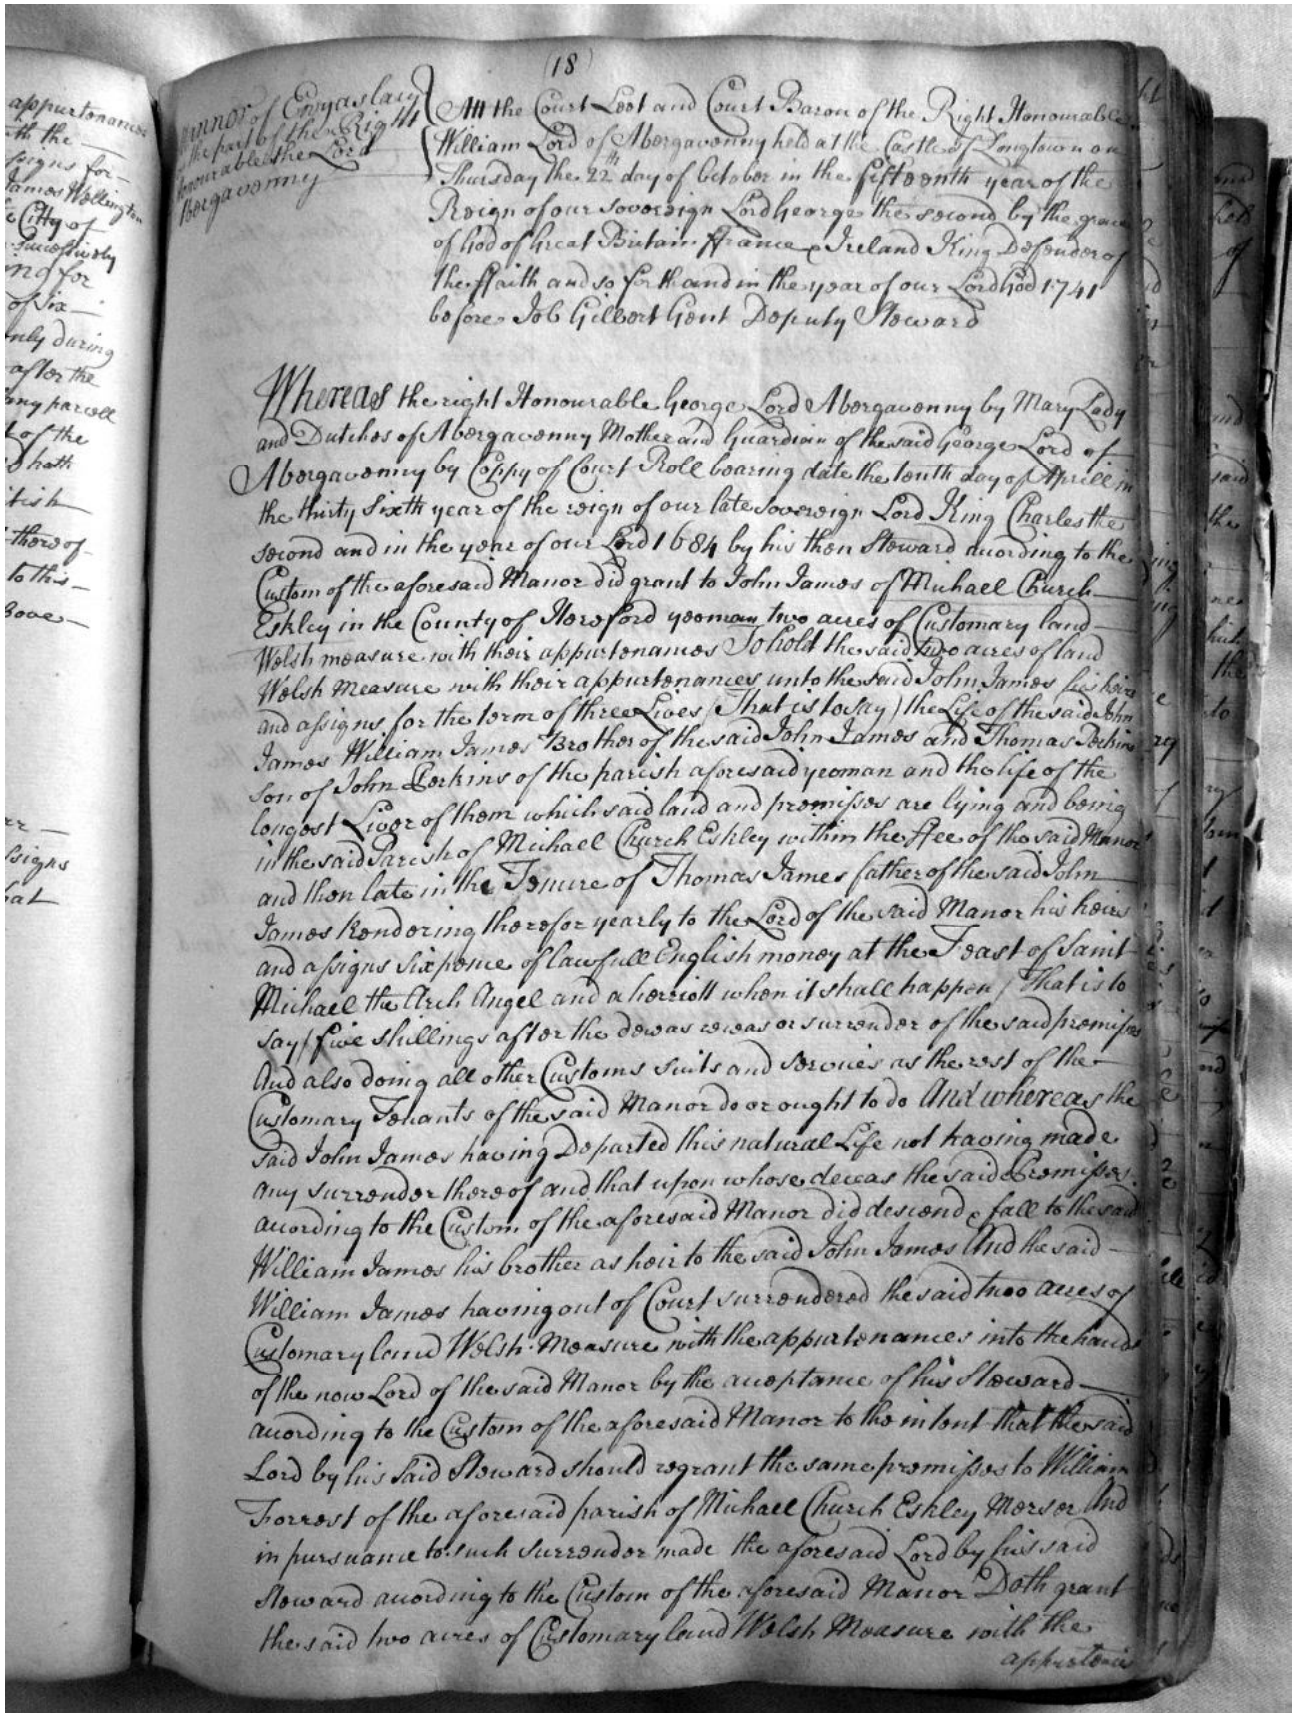 appurtenances
th the
ssigns for
James Wellington
e Citty of
successively
ing for
of six
only during
after the
any parcell
t of the
hath
itish
thereof
to this
Bove
ssigns
hat
(18)
of Ewyas lacy
the part of the Right
honourable the Lord
Bergavenny
Att the Court Leet and Court Baron of the Right Honourable
William Lord of Abergavenny held at the Castle of Longtown on
Thursday the 22th day of October in the fifteenth year of the
Reign of our sovereign Lord George the second by the grace
of God of Great Britain ffrance & Ireland King Defender of
the ffaith and so forth and in the year of our Lord God 1741
before Job Gilbert Gent Deputy Steward
Whereas the right Honourable George Lord Abergavenny by Mary Lady
and Dutches of Abergavenny Mother and Guardian of the said George Lord of
Abergavenny by Coppy of Court Roll bearing date the tenth day of Aprill in
the thirty sixth year of the reign of our late sovereign Lord King Charles the
second and in the year of our Lord 1684 by his then Steward according to the
Custom of the aforesaid Manor did grant to John James of Michael Church
Eskley in the County of Hereford yeoman two acres of Customary land
Welsh measure with their appurtenances To hold the said two acres of land
Welsh Measure with their appurtenances unto the said John James his heirs
and assigns for the term of three Lives (That is to say) the Life of the said John
James William James Brother of the said John James and Thomas Perkins
son of John Perkins of the parish aforesaid yeoman and the life of the
longest Liver of them which said land and premisses are lying and being
in the said Parish of Michael Church Eskley within the ffee of the said Manor
and then late in the Tenure of Thomas James father of the said John
James Rendering therefor yearly to the Lord of the said Manor his heirs
and assigns sixpence of lawfull English money at the Feast of Saint
Michael the Arch Angel and a herriott when it shall happen (That is to
say) five shillings after the deceas or surrender of the said premisses
And also doing all other Customs suits and services as the rest of the
Customary Tenants of the said Manor do or ought to do And whereas the
said John James having Departed this natural Life not having made
any surrender thereof and that upon whose deceas the said Premisses
according to the Custom of the aforesaid Manor did descend & fall to the said
William James his brother as heir to the said John James And the said
William James having out of Court surrendered the said two acres of
Customary land Welsh Measure with the appurtenances into the hands
of the now Lord of the said Manor by the acceptance of his Steward
according to the Custom of the aforesaid Manor to the intent that the said
Lord by his said Steward should regrant the same premisses to William
Forrest of the aforesaid parish of Michael Church Eskley Merser And
in pursuance to such surrender made the aforesaid Lord by his said
Steward according to the Custom of the aforesaid Manor Doth grant
the said two acres of Customary land Welsh Measure with the